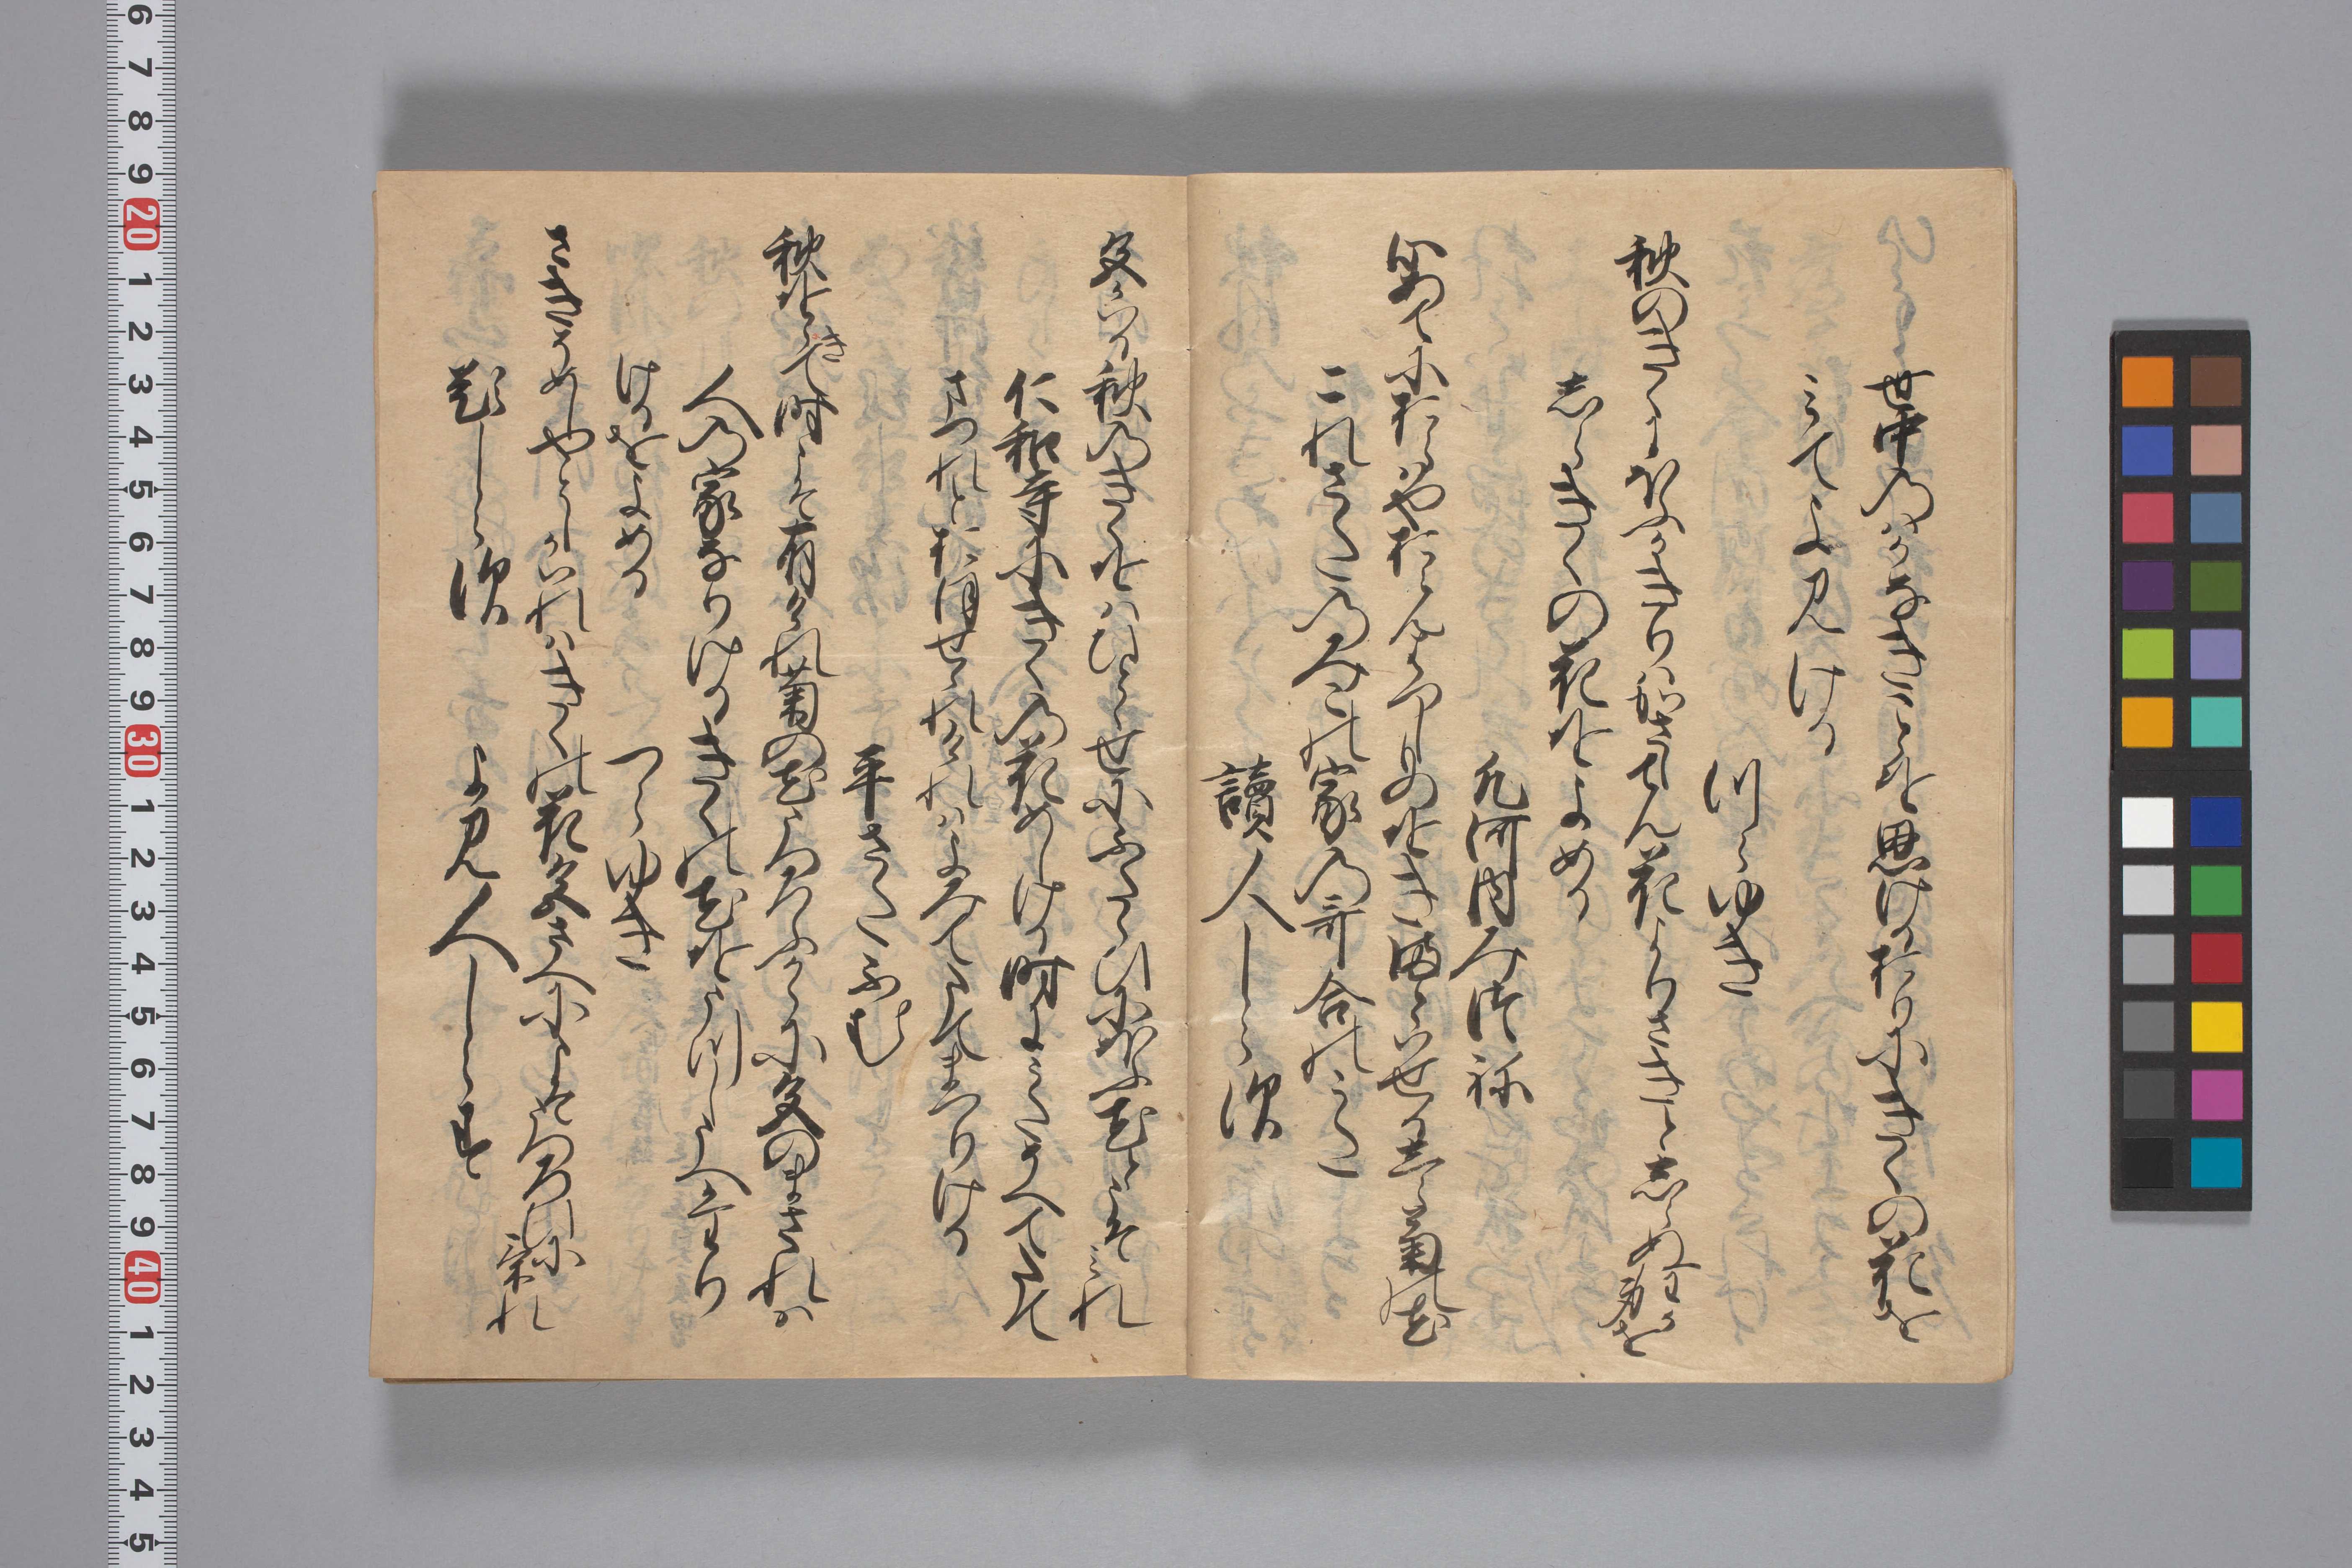 世中のはかなきことを思けるおりにきくの花を
みてよみける
つらゆき
秋のきくにほふかきりはかさしてん花よりさきとしらぬ我身を
しらきくの花をよめる
凡河内みつね
心あてにおらはやおらんはつしものをきまとはせるしら菊の花
これさたのみこの家の哥合のうた
讀人しらす
色かはる秋のきくをはひとゝせにふたゝひにほふ花とこそみれ
仁和寺にきくの花めしける時にうたそへてたてまつれとおほせられけれはよみてたてまつりける
平さたふむ
秋をゝきて時こそ有けれ菊の花うつろふからに色のまされは
人の家なりけるきくの花をうつしうへたり
けるをよめる
つらゆき
さきそめしやとしかはれはきくの花色さへにこそうつろひに
けれ
題しらす
よみ人しらす